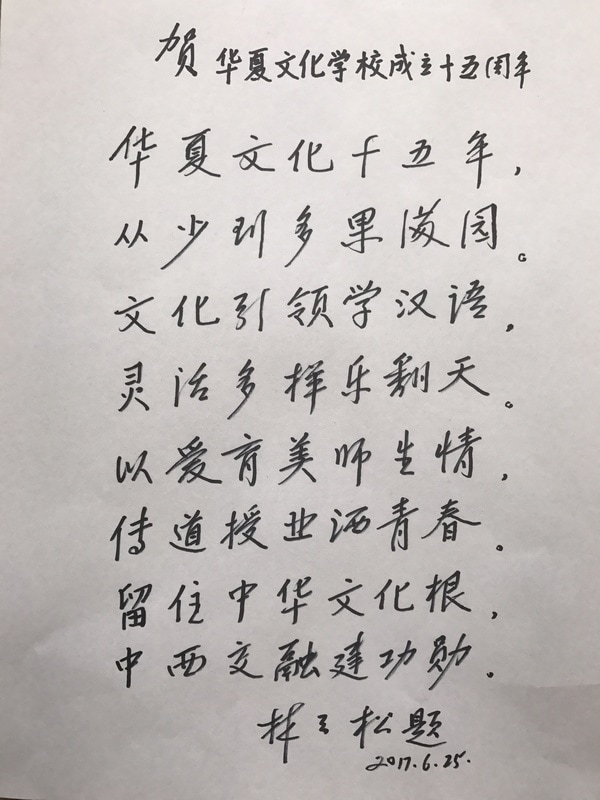 贺 华夏文化学校成立十五周年
华夏文化十五年，
从少到多果满园。
文化引领学汉语，
灵活多样乐翻天。
以爱育美师生情，
传道授业洒青春。
留住中华文化根，
中西交融建功勋。
林 松题
2017.6.25.